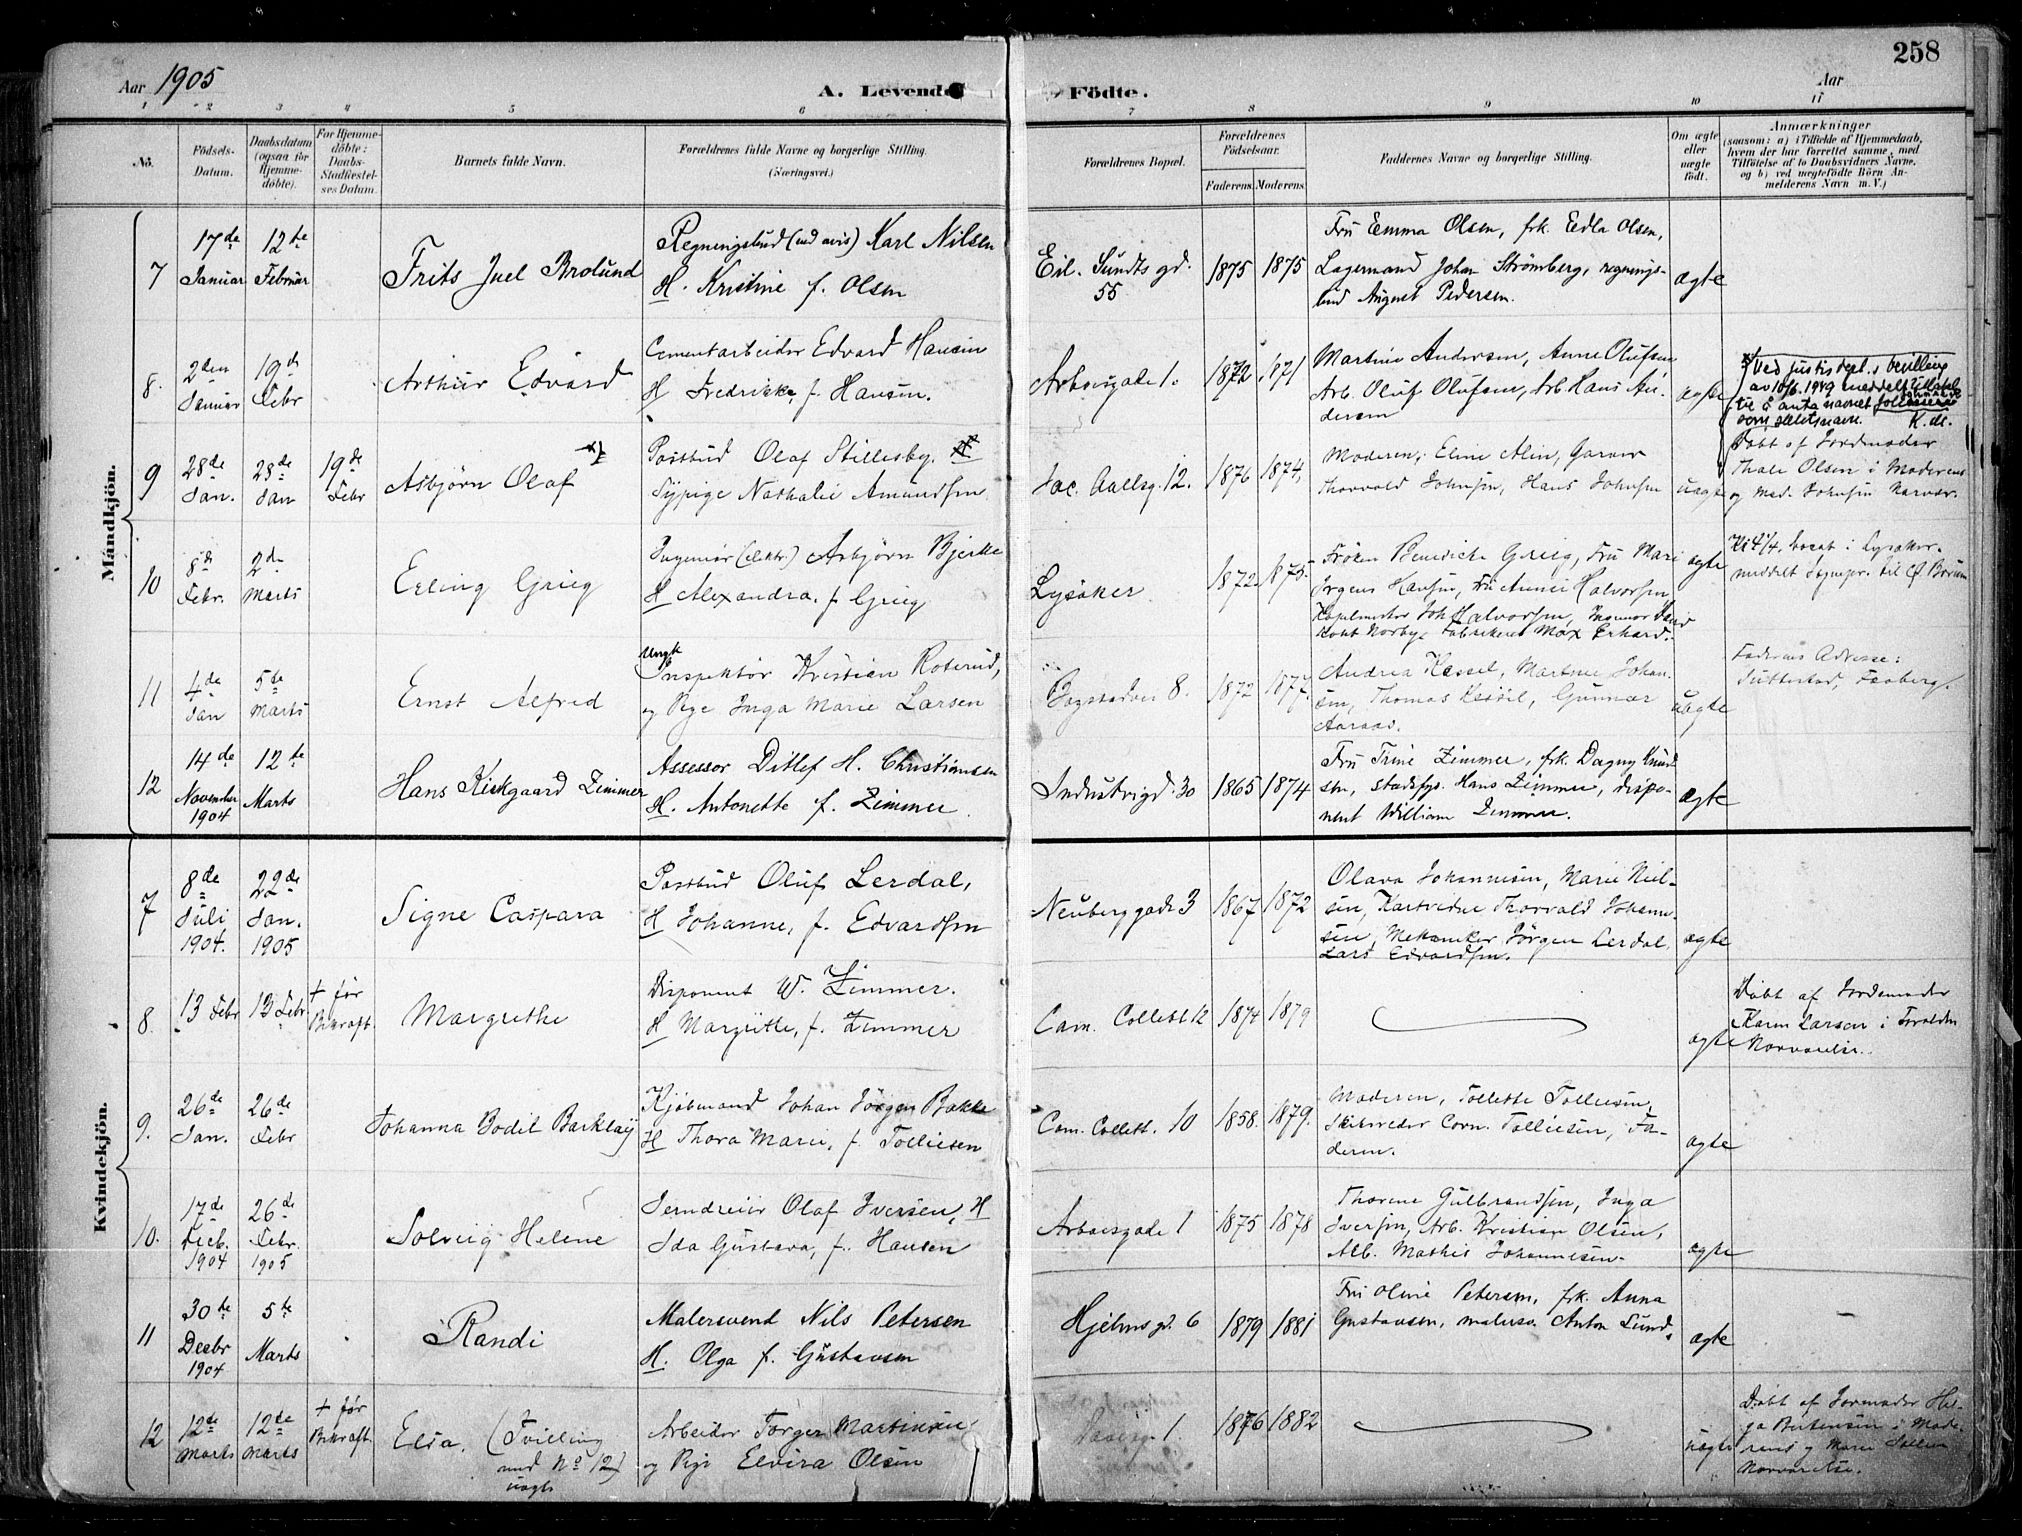 258
Aar 1905
A. Levende
Födte.
Aar
1 2 3 4 5 6 7 8 9 10 11
No.
Födsels-Datum.
Daabsdatum (ogsaa for Hjemmedöbte).
For Hjemmedöbte: Daabs-Stadfæstelses Datum.
Barnets fulde Navn.
Forældrenes fulde Navne og borgerlige Stilling.
(Næringsvei.)
Forældrenes Bopæl.
Forældrenes Födselsaar.
Faderens. Moderens.
Faddernes Navne og borgerlige Stilling.
Om ægte eller uægte födt.
Anmærkninger
(saasom: a) i Tilfælde af Hjemmedaab, hvem der har forrettet samme, med Tilföielse af to Daabsvidners Navne, og b) ved uægtefödte Börn Anmelderens Navn m. V.)
Mandkjön.
7
17de Januar
12te Februar
Frits Juel Brolund
Regningsbud (ved avis) Karl Nilsen
H. Kristine f. Olsen
Eil. Sundts gd. 55
1875 1875
Fru Emma Olsen, frk. Edla Olsen,
Lagermand Johan Strömberg, regnings-
bud August Pedersen.
ægte
8.
2den Januar
19de Febr
Arthur Edvard
Cementarbeider Edvard Hansen
H Fredrikke, f. Hansen.
Arbosgade 1.
1872 1871
Martine Andersen, Anne Olufsen,
Arb. Oluf Olufsen, Arb. Hans An-
dersen
ægte
x) Ved justisdept.s bevilling
av 10/6. 1949 meddelt tillatelse
til å anta navnet
som slektsnavn. K. M.
9
28de Jan.
28de Jan
19de Febr
Asbjørn Olaf x)
Postbud Olaf Stillesby.
Sypige Nathalie Amundsen
Jac. Aallsg. 12.
1876 1874,
Moderen, Eline Alin, Garver
Thorvald Johnsen, Hans Johnsen
uægte
Døbt af Jordmoder
Thale Olsen i Moderens
og Med. Johnsen Nærvær.
10
8de Febr.
2de Marts
Erling Grieg
Ingeniør (elektr.) Asbjørn Bjerke
H Alexandra f Grieg
Lysaker
1872 1875.
Frøken Benedicte Grieg, Fru Mari
Jrgens Hansen, Fru Annie Halvorsen,
Kapelmester Joh Halvorsen, Ingeniør
Norbye Fabrikeier Max Erhard.
ægte
meddelt Sognepr. til Ø Bærum
11
4de Jan
5te Marts
Ernst Alfred
Ungk
Inspektør Kristian Roterud,
og Pige Inga Marie Larsen
Bogstadvei 8.
1872 1877.
Andrea Kessel, Martine Johan-
sen, Thomas Kessel, Gunnar
Aaraas.
uægte
Faderens Adresse:
Faaberg.
12
14de November 1904
12te Marts
Hans Kirkgaard Zimmer
Assessor Ditlef H. Christiansen
H. Antonette f. Zimmer
Industrigd. 30
1865 1874
Fru Trine Zimmer, frk. Dagny Knud-
sen, stadsfys. Hans Zimmer, dispo-
nent William Zimmer.
ægte
Kvindekjön.
7
8de Juli 1904.
22de Jan. 1905
Signe Caspara
Postbud Oluf Lerdal,
H Johanne, f. Edvardsen
Neuberggade 3
1867 1872
Olava Johannesen, Marie Niel-
sen, Thorvald Johann-
sen, Mekaniker Jørgen Lerdal,
Lars Edvardsen.
ægte
8.
13 Febr
13 Febr
+ før Bekræft.
Margrethe
Disponent W. Zimmer.
H Margrethe, f. Zimmer
Cam. Collett 12
1874 1879
ægte
Døbt af Jordemoder
Karen Larsen i Foreldr.
Nærværelse.
9.
26de Jan.
26de Febr
Johanna Bodil Barklay
Kjøbmand Johan Jørgen Bakke
H Thora Marie, f. Tollefsen
Cam. Collett. 10
1858. 1879.
Moderen, Tollette Tollefsen,
Skibsreder Corn. Tollefsen, Fa-
deren.
ægte
10.
17de Decb. 1904
26de Febr. 1905
Solveig Helene
Jerndreier Olaf Iversen, H
Ida Gustava, f. Hansen
Arbosgade 1
1875 1878
Thorene Gulbrandsen, Inga
Iversen, Arb. Kristian Olsen,
Arb. Mathis Johannesen.
ægte
11
30te Decbr 1904
5te Marts
Randi
Malersvend Nils Petersen
H. Olga f. Gustavsen
Hjelms gd. 6
1879 1881
Fru Oline Petersen, frk. Anna
Gustavsen, malersv. Anton Lund.
ægte
12
12de Marts
12de Marts
+ før Bekræft.
Elsa. (Tvilling
med No 12)
uægte
Arbeider Torger Martinsen
og Pige Elvira Olsen
1.
1876 1882
uægte
Døbt af Jormoder Hel-
ga Berntsen i Mode-
rens og Marie
Nærværelse.